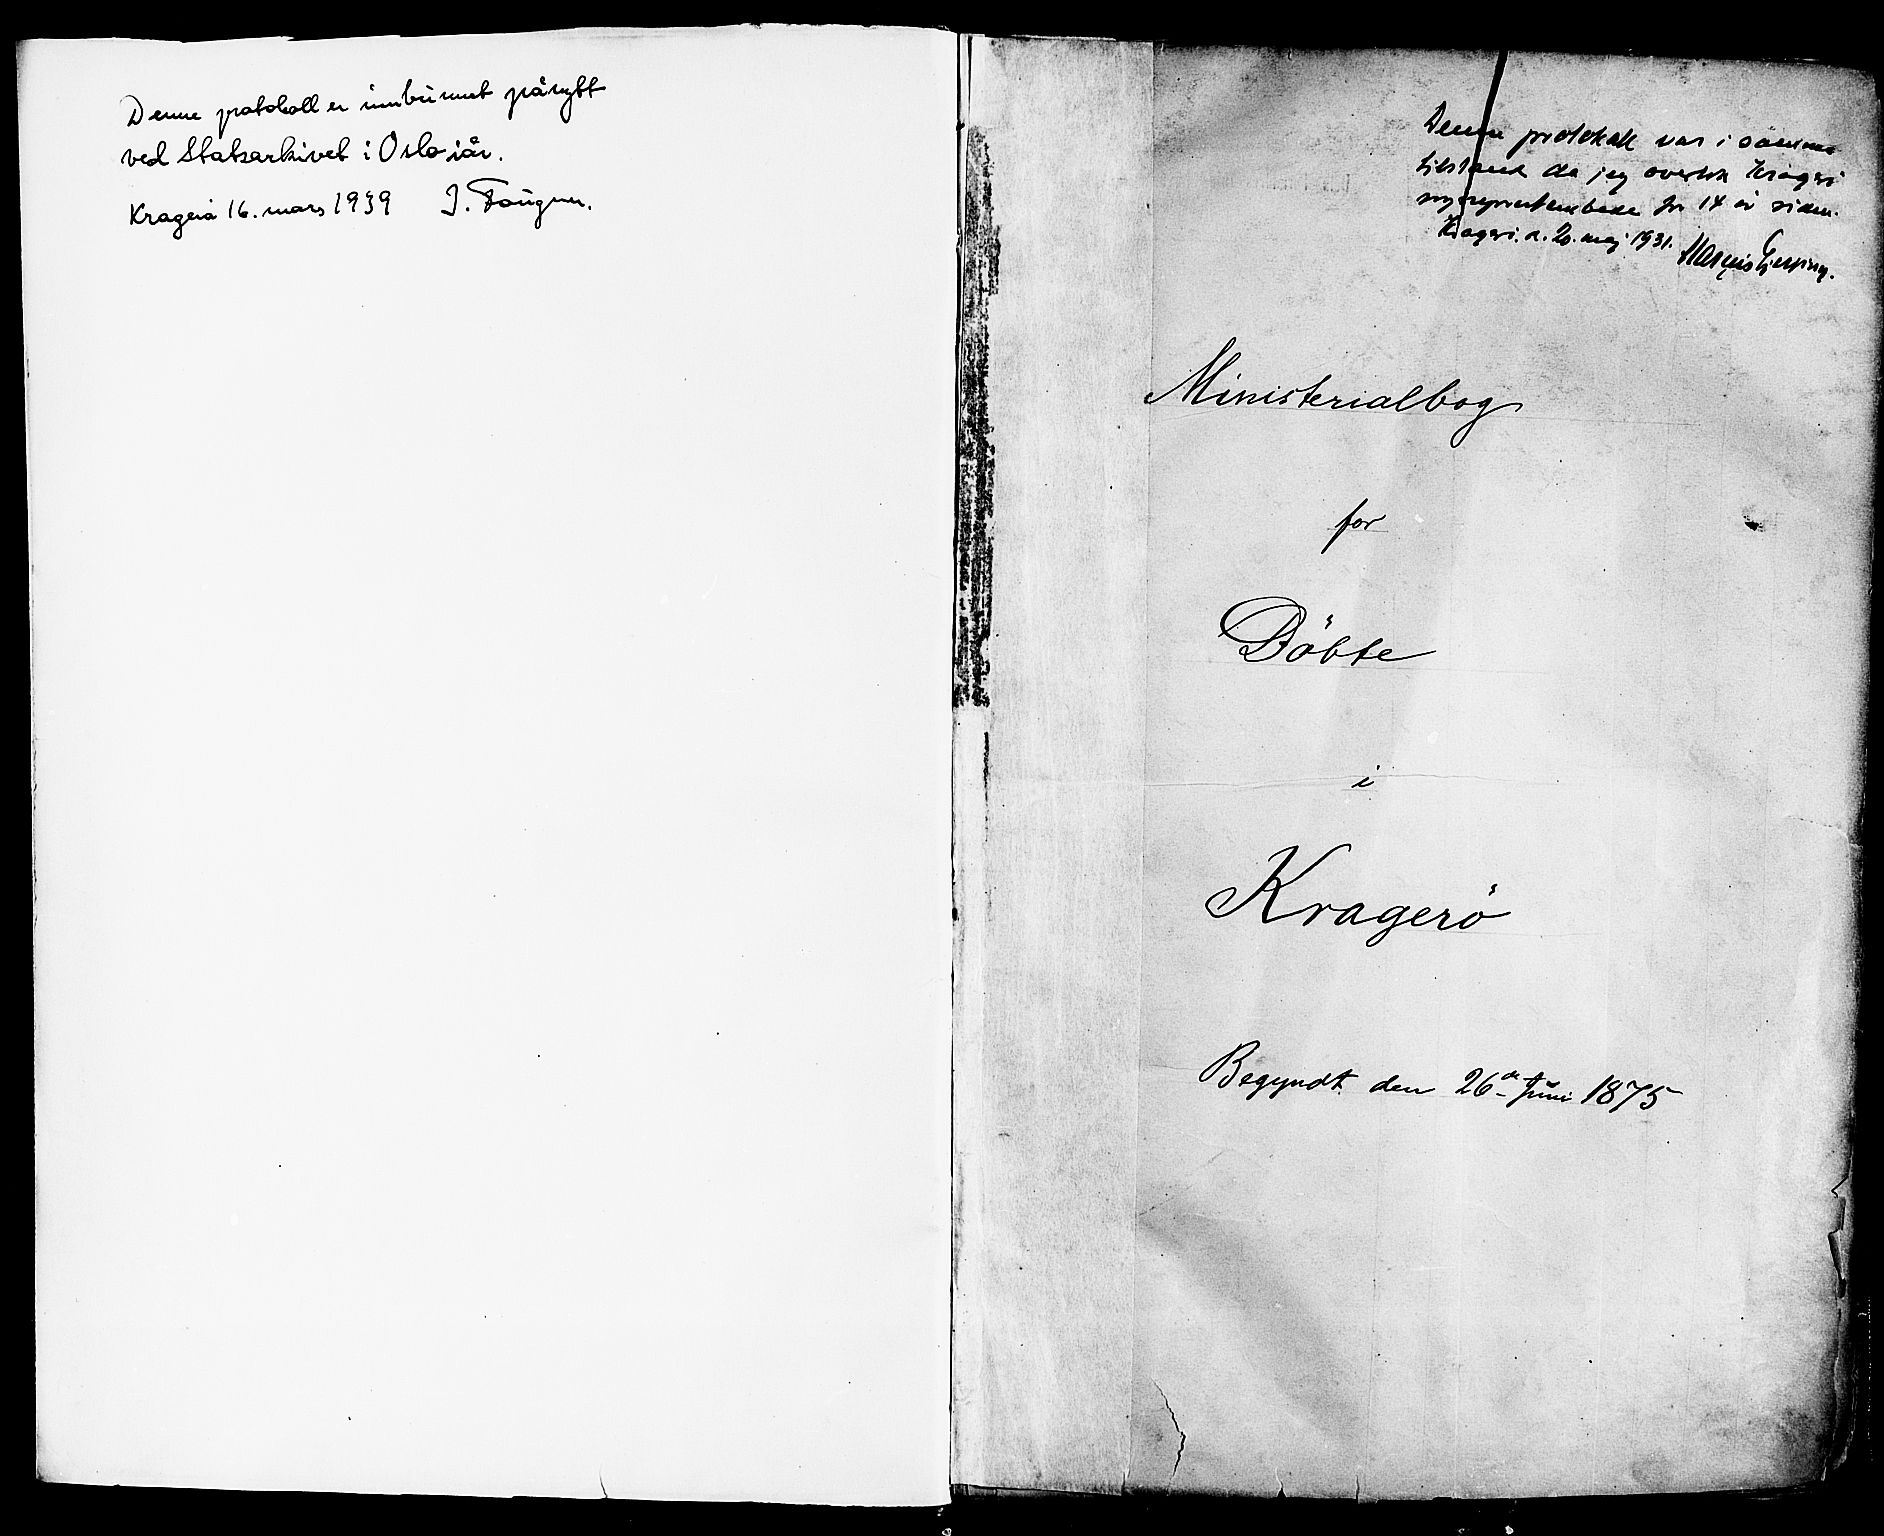 Denne protokoll er innbunnet pånytt
ved Statsarkivet i Oslo iår.
Kragerø 16. mars 1939 J.
Denne protokoll var i samme
tilstand da jeg overtok Kragerø
for 14 år siden.
Kragerø. d. 20. maj 1931.
Ministerialbog
for
Döbte
i
Kragerö
Begyndt den 26de Juni 1875